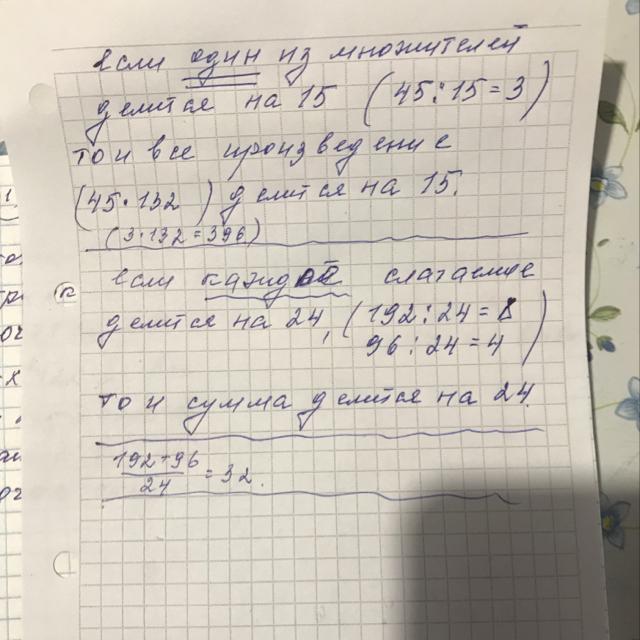 если один из множителей
делится на 15 (45:15=3)
то и все произведение
(45·132) делится на 15.
(3·132=396)
если каждое слагаемое
к
делится на 24, (192:24=8
96:24=4)
то и сумма делится на 24.
192+96
24
=32.